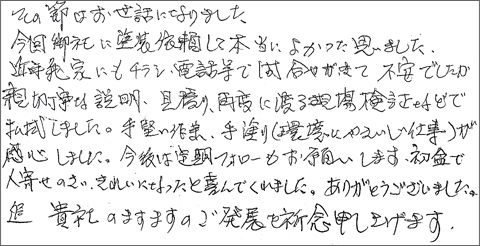 その節はお世話になりました。
今回御社に塗装依頼して本当によかった思いました。
我家にもチラシ、電話等で問合せがきて不安でしたが
親切丁寧な説明、見積り、再度に渡る現場検証などで
払拭しました。手堅い作業、手塗り(環境にやさしい仕事)が
感心しました。今後は定期フォローもお願いします。お盆で
人寄せのさい、きれいになったと喜んでくれました。ありがとうございました。
追 貴社のますますのご発展を祈念申し上げます。